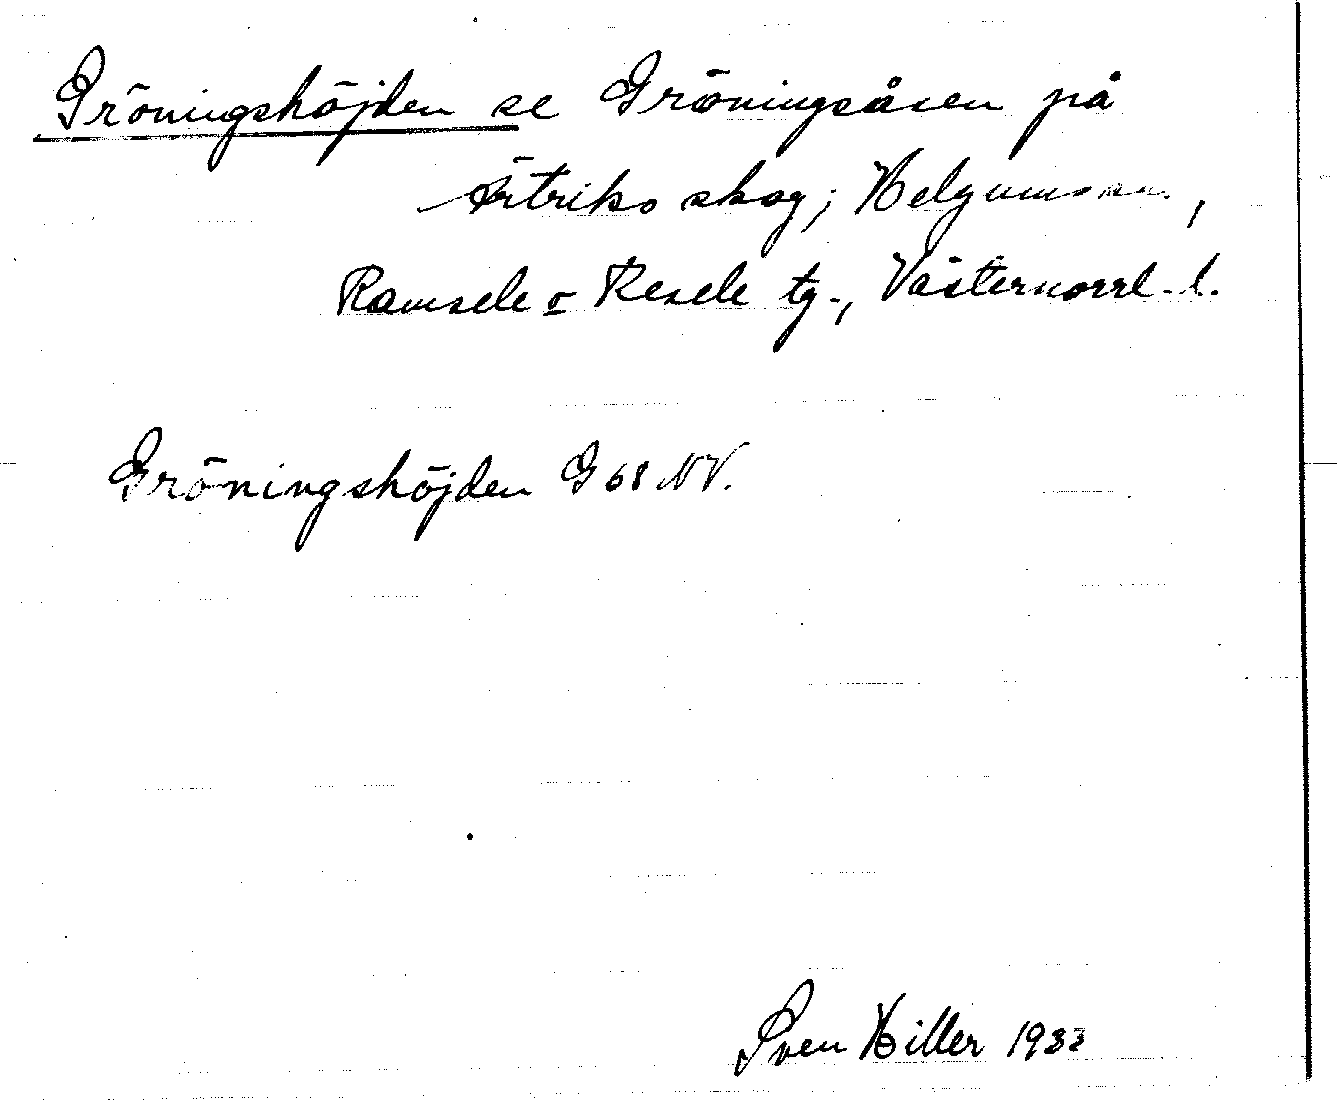 Gröningshöjden se Gröningsåsen på
Ärtriks skog; Helgums sn.,
Ramsele o Resele tg., Västernorrl. l.
Gröningshöjden G 68 NV.
Sven Hiller 1933